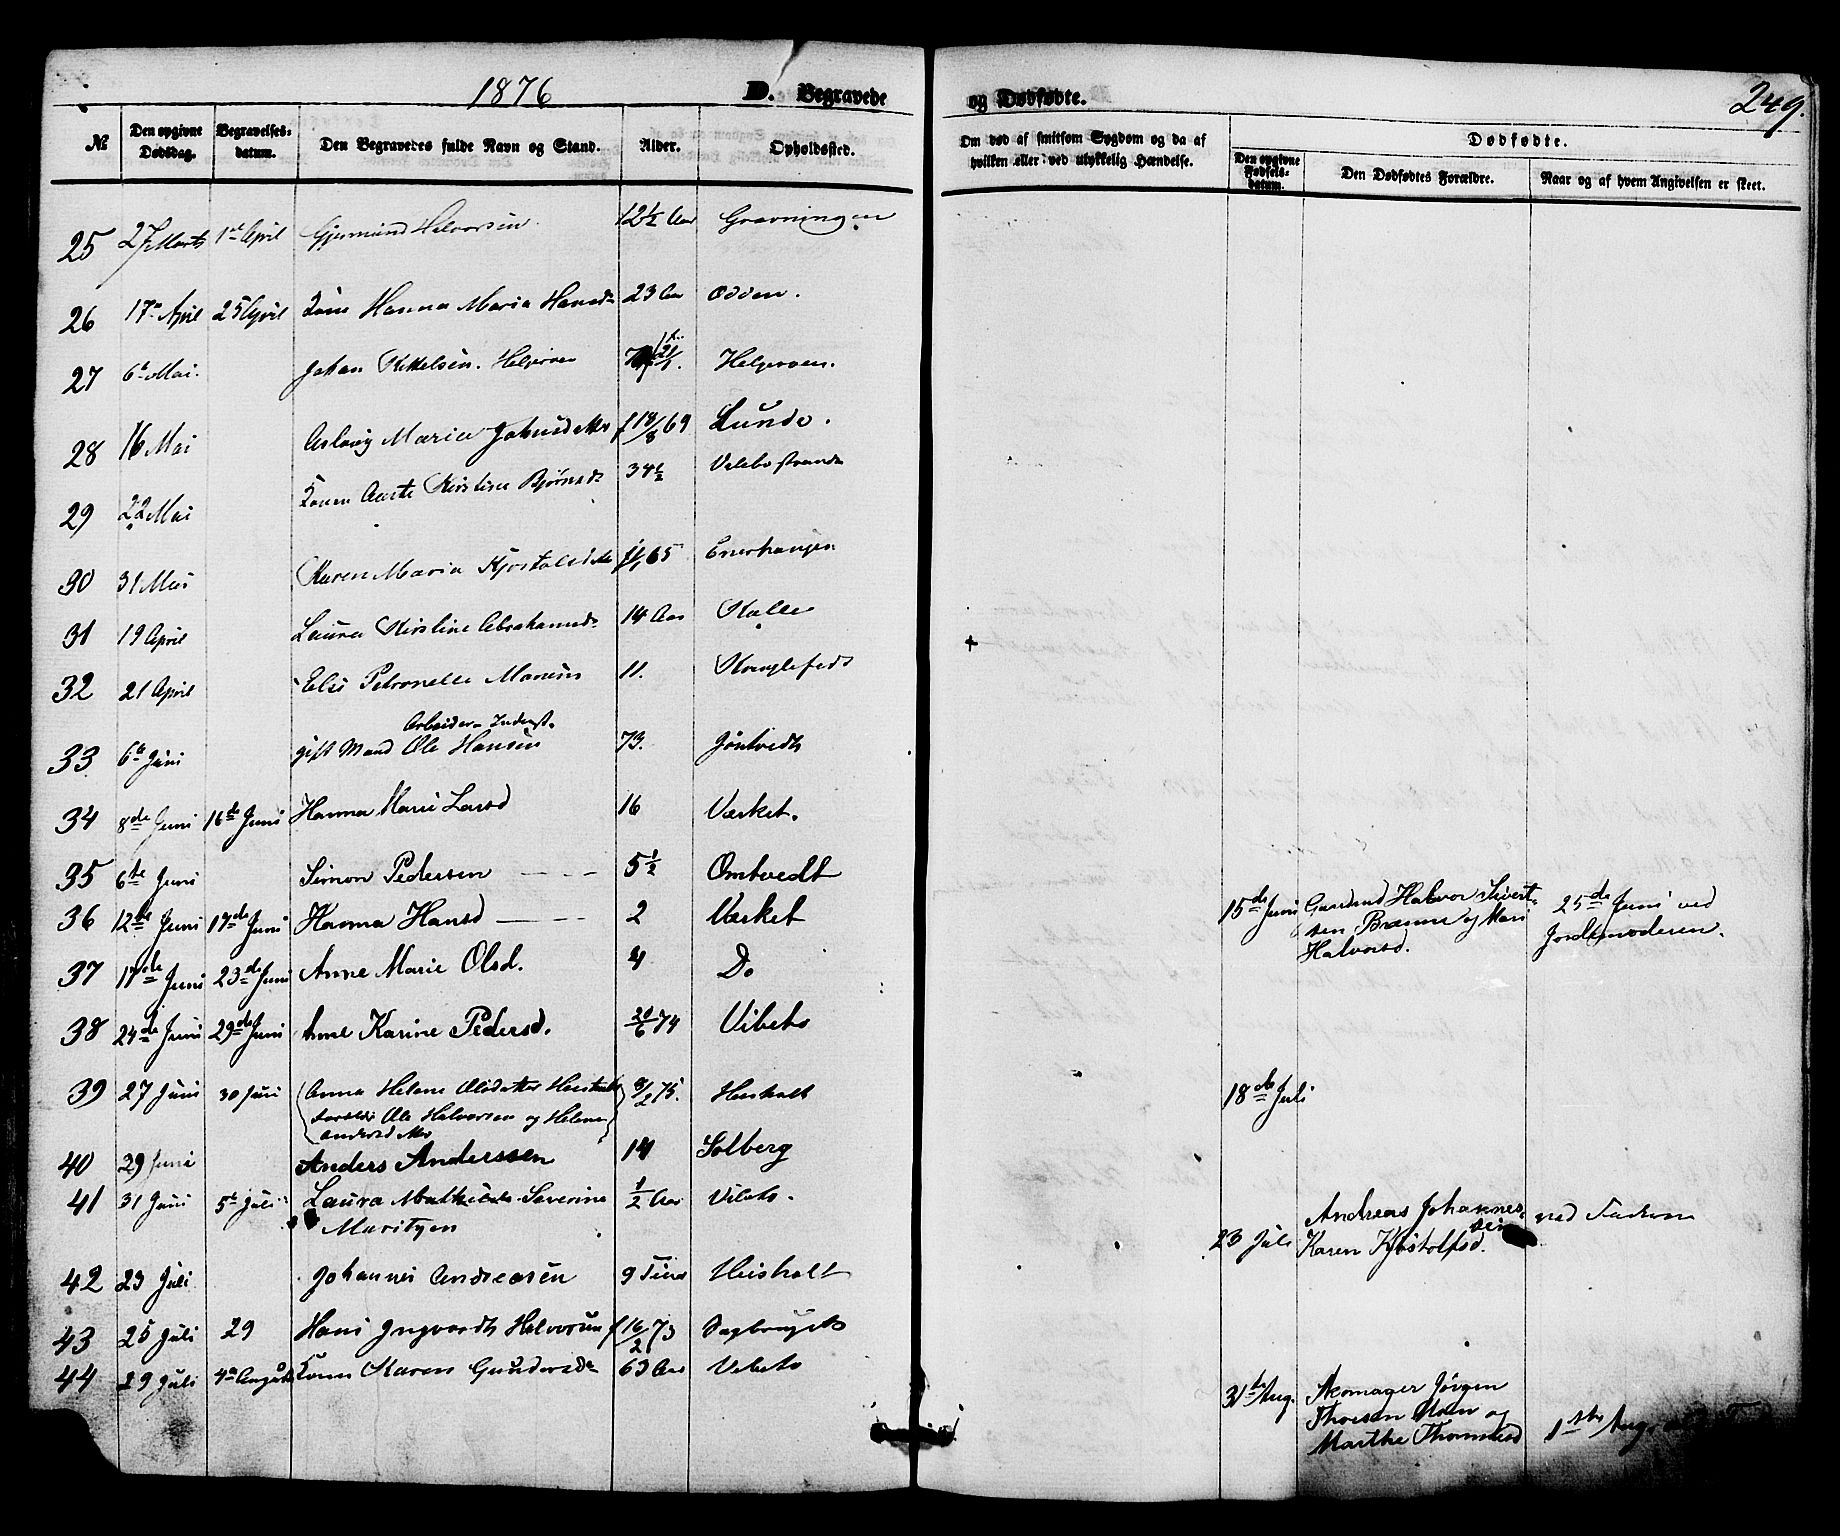 1876
D. Begravede
og Dødfødte.
249.
№
Den opgivne Dødsdag.
Begravelses-datum.
Den Begravedes fulde Navn og Stand.
Alder.
Opholdssted.
Om død af smitsom Sygdom og da af hvilken eller ved ulykkelig Hændelse.
Dødfødte.
Den opgivne Fødsels-datum.
Den Dødfødtes Forældre.
Naar og af hvem Angivelsen er skeet.
25 27 Marts 1ste April Gjermund Halvorsen 12½ Aar Gravningen
26 17de April 25 April Kone Hanna Maria Hansd 23 Aar Odden.
27 6te Mai. Johan Kittelsen.
28 16 Mai Aslaug Maria Johnsdatter f 18/8 69 Lunde.
29 22 Mai Konen Aaste Kirstine Bjørnsd 34½
30 31 Mai Karen Maria 65
31 19 April Laura Kirstine Abrahamsd 14 Aar
32 21 April Elis Petronelle 11.
Arbeider Inderst.
33 6te Juni gift Mand Ole Hansen 73. Jøntvedt
34 8de Juni 16de Juni Hanna Marie Larsd 16 Værket.
35 6te Juni Simon Pedersen 5½ Omtvedt
36 12te Juni 17de Juni Hanna Hansd 2 Værket
15de Juni Gaardmd Halvor Sivert-
sen og Mari
Halvorsd.
25de Juni ved
Jordemoderen.
37 17de Juni 23de Juni Anne Marie Olsd. 4 Do
38 24de Juni 29de Juni Anne Karine Pedersd. 20/6 74 Vibeto
39 27 Juni 30 Juni Anna Helene Olsdatter 8/2 75. Heisholt
Forældre Ole Halvorsen og Helene
Andersdatter
18de Juli
40 29 Juni Anders Anderssen 14 Solberg
41 31 Juni 5te Juli Laura Mathilde Severine ½ Aar Vibeto.
Maritzen
23 Juli Andreas Johannes-
sen
Karen Kjøstolfsd.
ved Faderen
42 23 Juli Johannes Andreasen 9 Timer Heisholt
43 25 Juli 29 Hans Ingvardt Halvorsen f 16/2 73
44 29 Juli 4de August Konen Maren Gundersd 63 Aar Vibeto
31te Aug. Skomager Jørgen
Thorsen Moen og
Marthe Thomasd
1ste Aug.